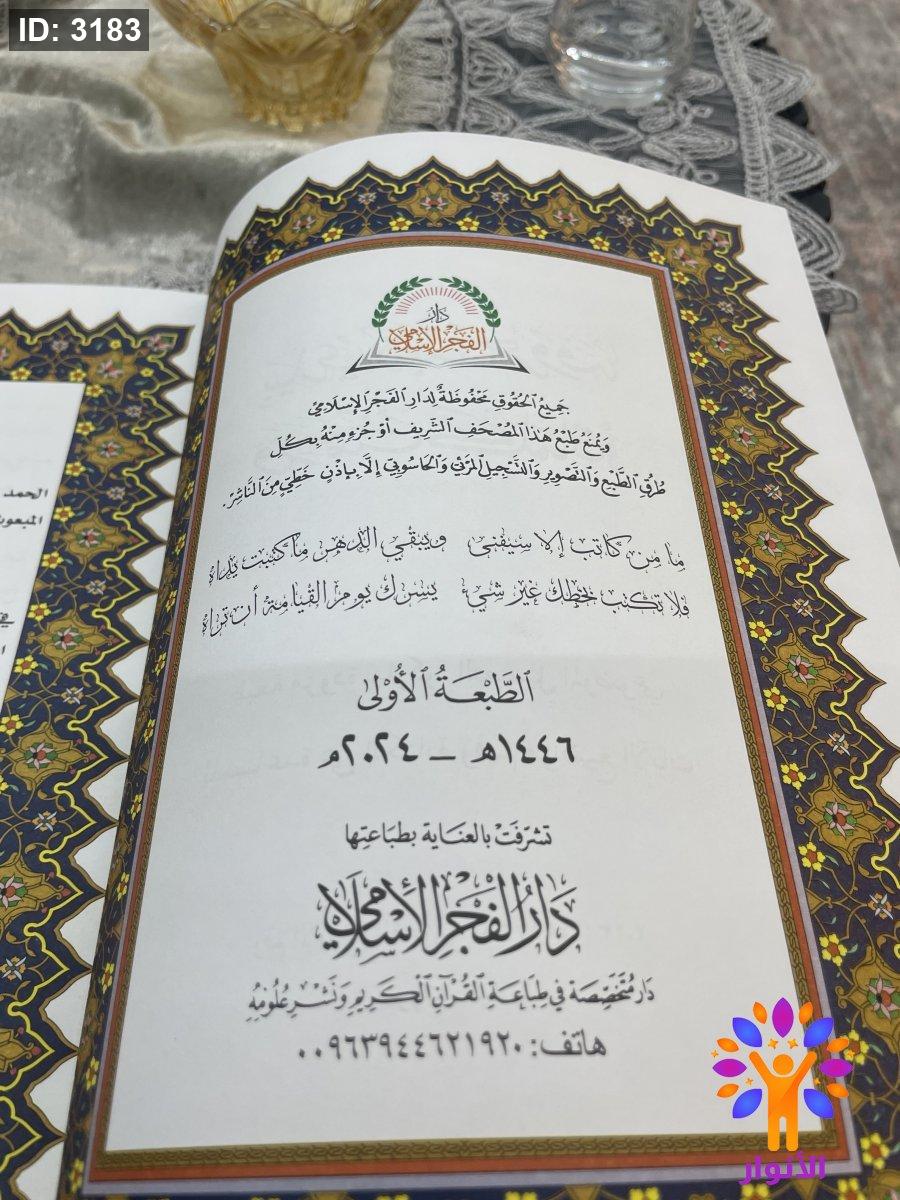 ID: 3183
دَار
الفَجْر الإسْلَامي
جَمِيعُ الحُقُوقِ مَحْفُوظَةٌ لِدَارِ الفَجْرِ الإِسْلَامِيّ
وَيُمْنَعُ طَبْعُ هٰذَا المُصْحَفِ الشَّرِيفِ أَوْ جُزْءٍ مِنْهُ بِكُلِّ
طُرُقِ الطَّبْعِ وَالتَّصْوِيرِ وَالتَّسْجِيلِ المَرْئِيِّ وَالحَاسُوبِيِّ إِلَّا بِإِذْنٍ خَطِّيٍّ مِنَ النَّاشِرِ.
ما من كاتب إلا سيفنى ويبقي الدهر ما كتبت يداه
فلا تكتب بخطك غير شيء يسرك يوم القيامة أن تراه
الطَّبْعَةُ الأُوْلى
١٤٤٦هـ – ٢٠٢٤م
تشرّفَتْ بالعناية بطباعتها
دَارُ الفَجْرِ الإِسْلَامِي
دَار مُتَخَصِّصَة في طِبَاعَةِ القُرْآنِ الكَرِيمِ وَنَشْرِ عُلُومِهِ
هاتف: ٠٠٩٦٣٩٤٤٦٢١٩٢٠
الحمد
الأنوار